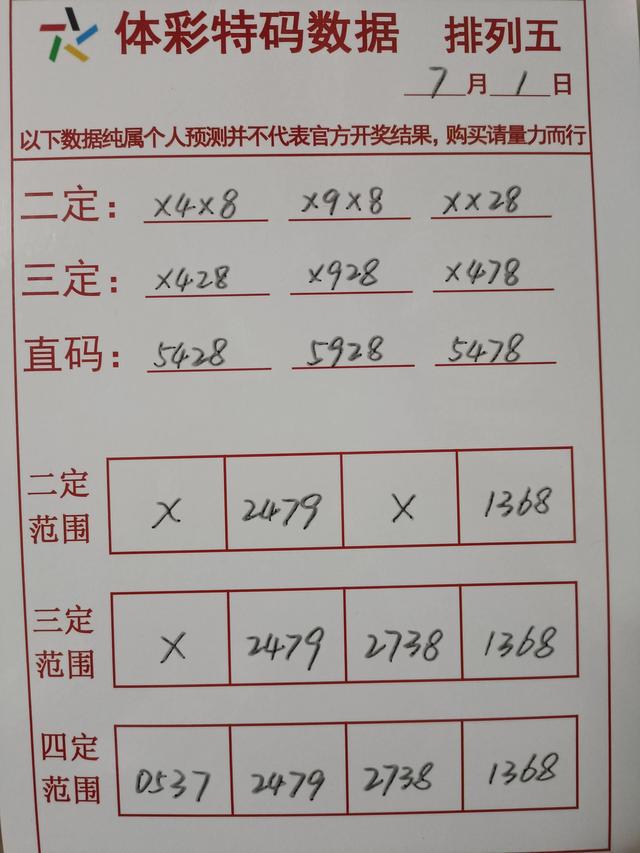 体彩特码数据 排列五
7月1日
以下数据纯属个人预测并不代表官方开奖结果，购买请量力而行
二定： X4X8 X9X8 XX28
三定： X428 X928 X478
直码： 5428 5928 5478
二定范围 X 2479 X 1368
三定范围 X 2479 2738 1368
四定范围 0537 2479 2738 1368